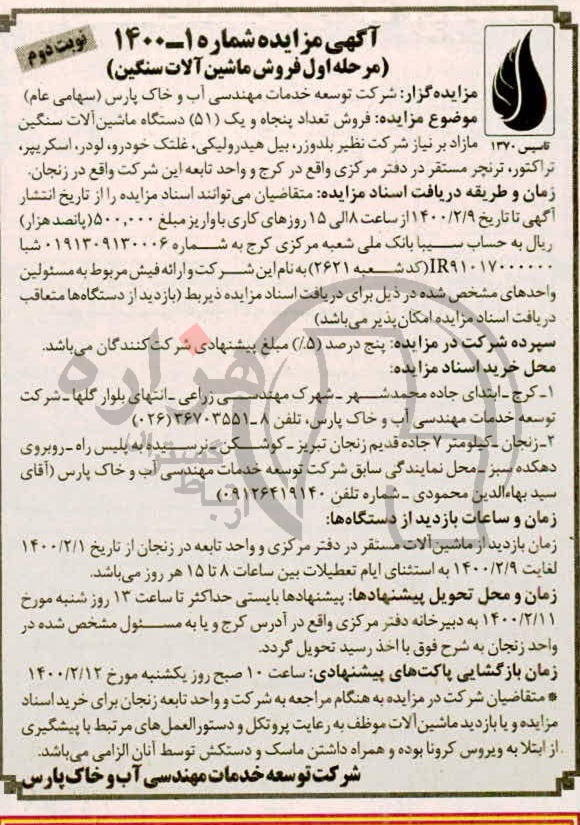 آگهی مزایده شماره ۱ـ۱۴۰۰
نوبت دوم
(مرحله اول فروش ماشین‌آلات سنگین)
تاسیس ۱۳۷۰
مزایده‌گزار: شرکت توسعه خدمات مهندسی آب و خاک پارس (سهامی عام)
موضوع مزایده: فروش تعداد پنجاه و یک (۵۱) دستگاه ماشین‌آلات سنگین
مازاد بر نیاز شرکت نظیر بلدوزر، بیل هیدرولیکی، غلتک خودرو، لودر، اسکریپر،
تراکتور، ترنچر مستقر در دفتر مرکزی واقع در کرج و واحد تابعه این شرکت واقع در زنجان.
زمان و طریقه دریافت اسناد مزایده: متقاضیان می‌توانند اسناد مزایده را از تاریخ انتشار
آگهی تا تاریخ ۱۴۰۰/۲/۹ از ساعت ۸ الی ۱۵ روزهای کاری با واریز مبلغ ۵۰۰,۰۰۰ (پانصد هزار)
ریال به حساب سیبا بانک ملی شعبه مرکزی کرج به شماره ۰۱۹۱۳۰۹۱۳۰۰۰۶ شبا
IR۹۱۰۱۷۰۰۰۰۰۰۰ (کد شعبه ۲۶۲۱) به نام این شرکت و ارائه فیش مربوط به مسئولین
واحدهای مشخص شده در ذیل برای دریافت اسناد مزایده ذیربط (بازدید از دستگاه‌ها متعاقب
دریافت اسناد مزایده امکان‌پذیر می‌باشد)
سپرده شرکت در مزایده: پنج درصد (۵٪) مبلغ پیشنهادی شرکت‌کنندگان می‌باشد.
محل خرید اسناد مزایده:
۱ـ کرج ـ ابتدای جاده محمدشهر ـ شهرک مهندسی زراعی ـ انتهای بلوار گلها ـ شرکت
توسعه خدمات مهندسی آب و خاک پارس، تلفن ۸ ـ ۳۶۷۰۳۵۵۱ (۰۲۶)
۲ـ زنجان ـ کیلومتر ۷ جاده قدیم زنجان تبریز ـ کوشکن ـ نرسیده به پلیس راه ـ روبروی
دهکده سبز ـ محل نمایندگی سابق شرکت توسعه خدمات مهندسی آب و خاک پارس (آقای
سید بهاءالدین محمودی ـ شماره تلفن ۰۹۱۲۶۴۱۹۱۴۰)
زمان و ساعات بازدید از دستگاه‌ها:
زمان بازدید از ماشین‌آلات مستقر در دفتر مرکزی و واحد تابعه در زنجان از تاریخ ۱۴۰۰/۲/۱
لغایت ۱۴۰۰/۲/۹ به استثنای ایام تعطیلات بین ساعات ۸ تا ۱۵ هر روز می‌باشد.
زمان و محل تحویل پیشنهادها: پیشنهادها بایستی حداکثر تا ساعت ۱۳ روز شنبه مورخ
۱۴۰۰/۲/۱۱ به دبیرخانه دفتر مرکزی واقع در آدرس کرج و یا به مسئول مشخص شده در
واحد زنجان به شرح فوق با اخذ رسید تحویل گردد.
زمان بازگشایی پاکت‌های پیشنهادی: ساعت ۱۰ صبح روز یکشنبه مورخ ۱۴۰۰/۲/۱۲
* متقاضیان شرکت در مزایده به هنگام مراجعه به شرکت و واحد تابعه زنجان برای خرید اسناد
مزایده و یا بازدید ماشین‌آلات موظف به رعایت پروتکل و دستورالعمل‌های مرتبط با پیشگیری
از ابتلا به ویروس کرونا بوده و همراه داشتن ماسک و دستکش توسط آنان الزامی می‌باشد.
شرکت توسعه خدمات مهندسی آب و خاک پارس
هزاره